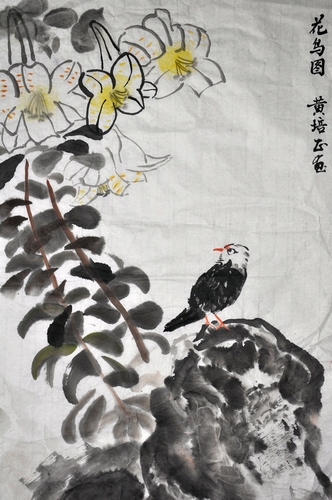 花鸟图 黄培正画